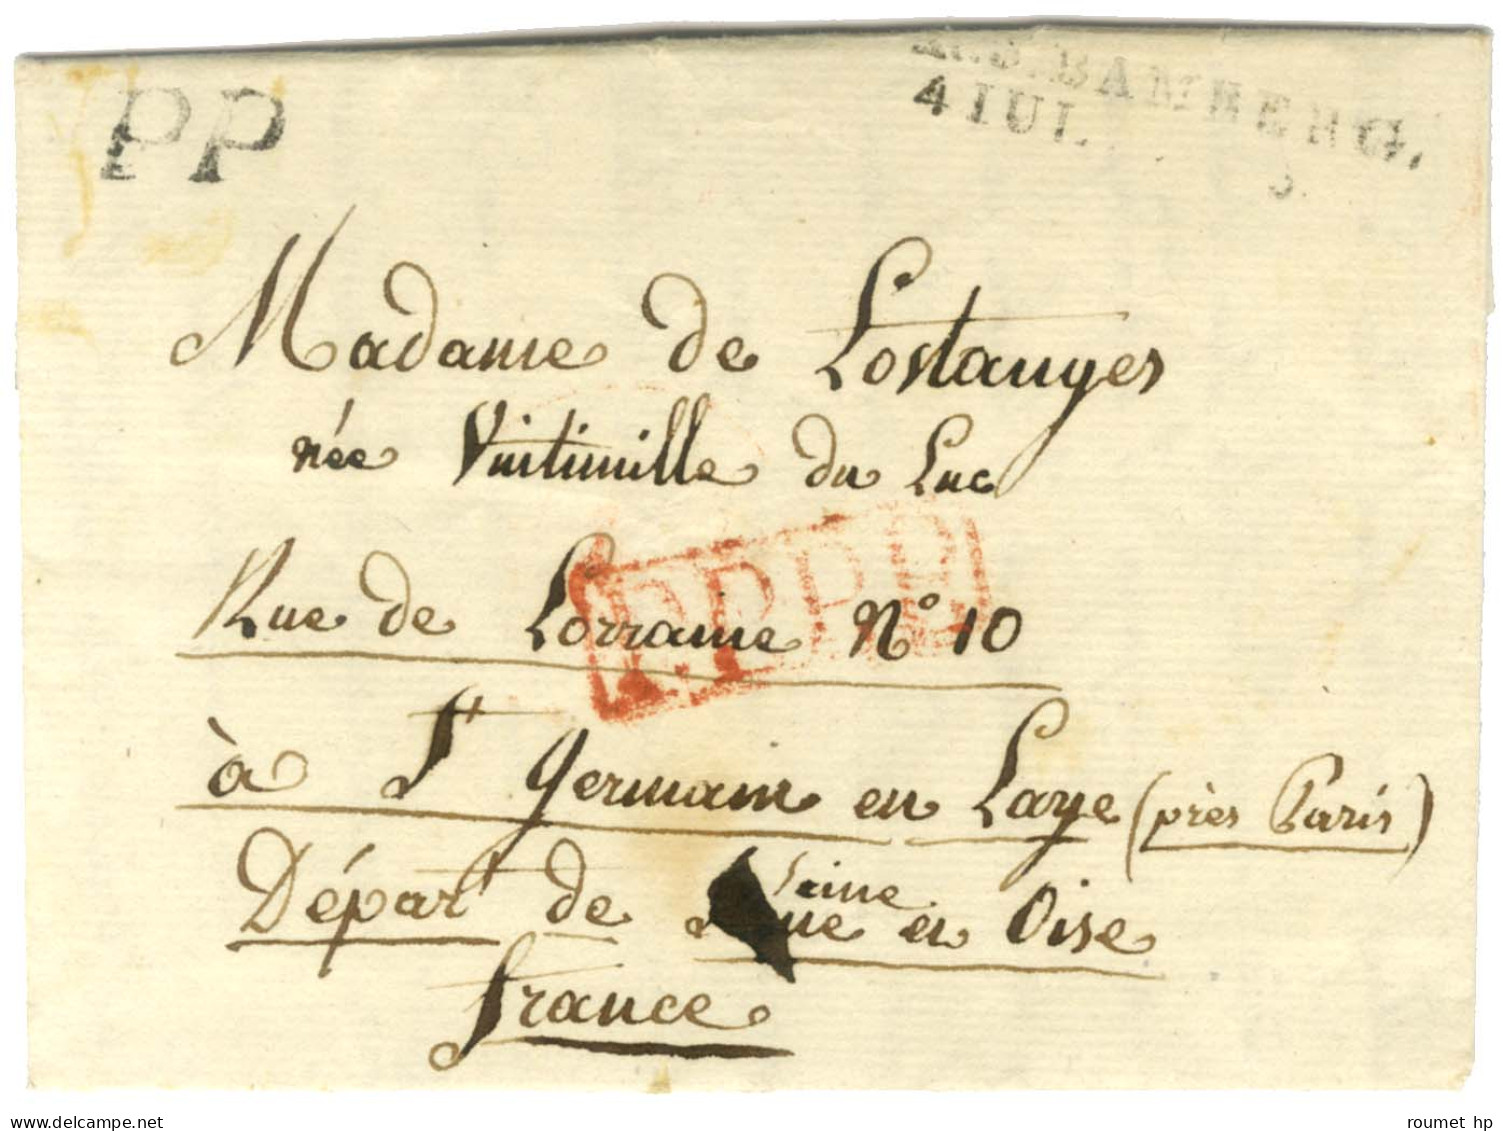 PP
R.3.BAMBERG.
4 IUL
Madame de Lostanges
née Vintimille du Luc
Rue de Lorraine N° 10
P.P.P.P.
à St Germain en Laye (près Paris)
Départ de Seine en Oise
France
roumet hp